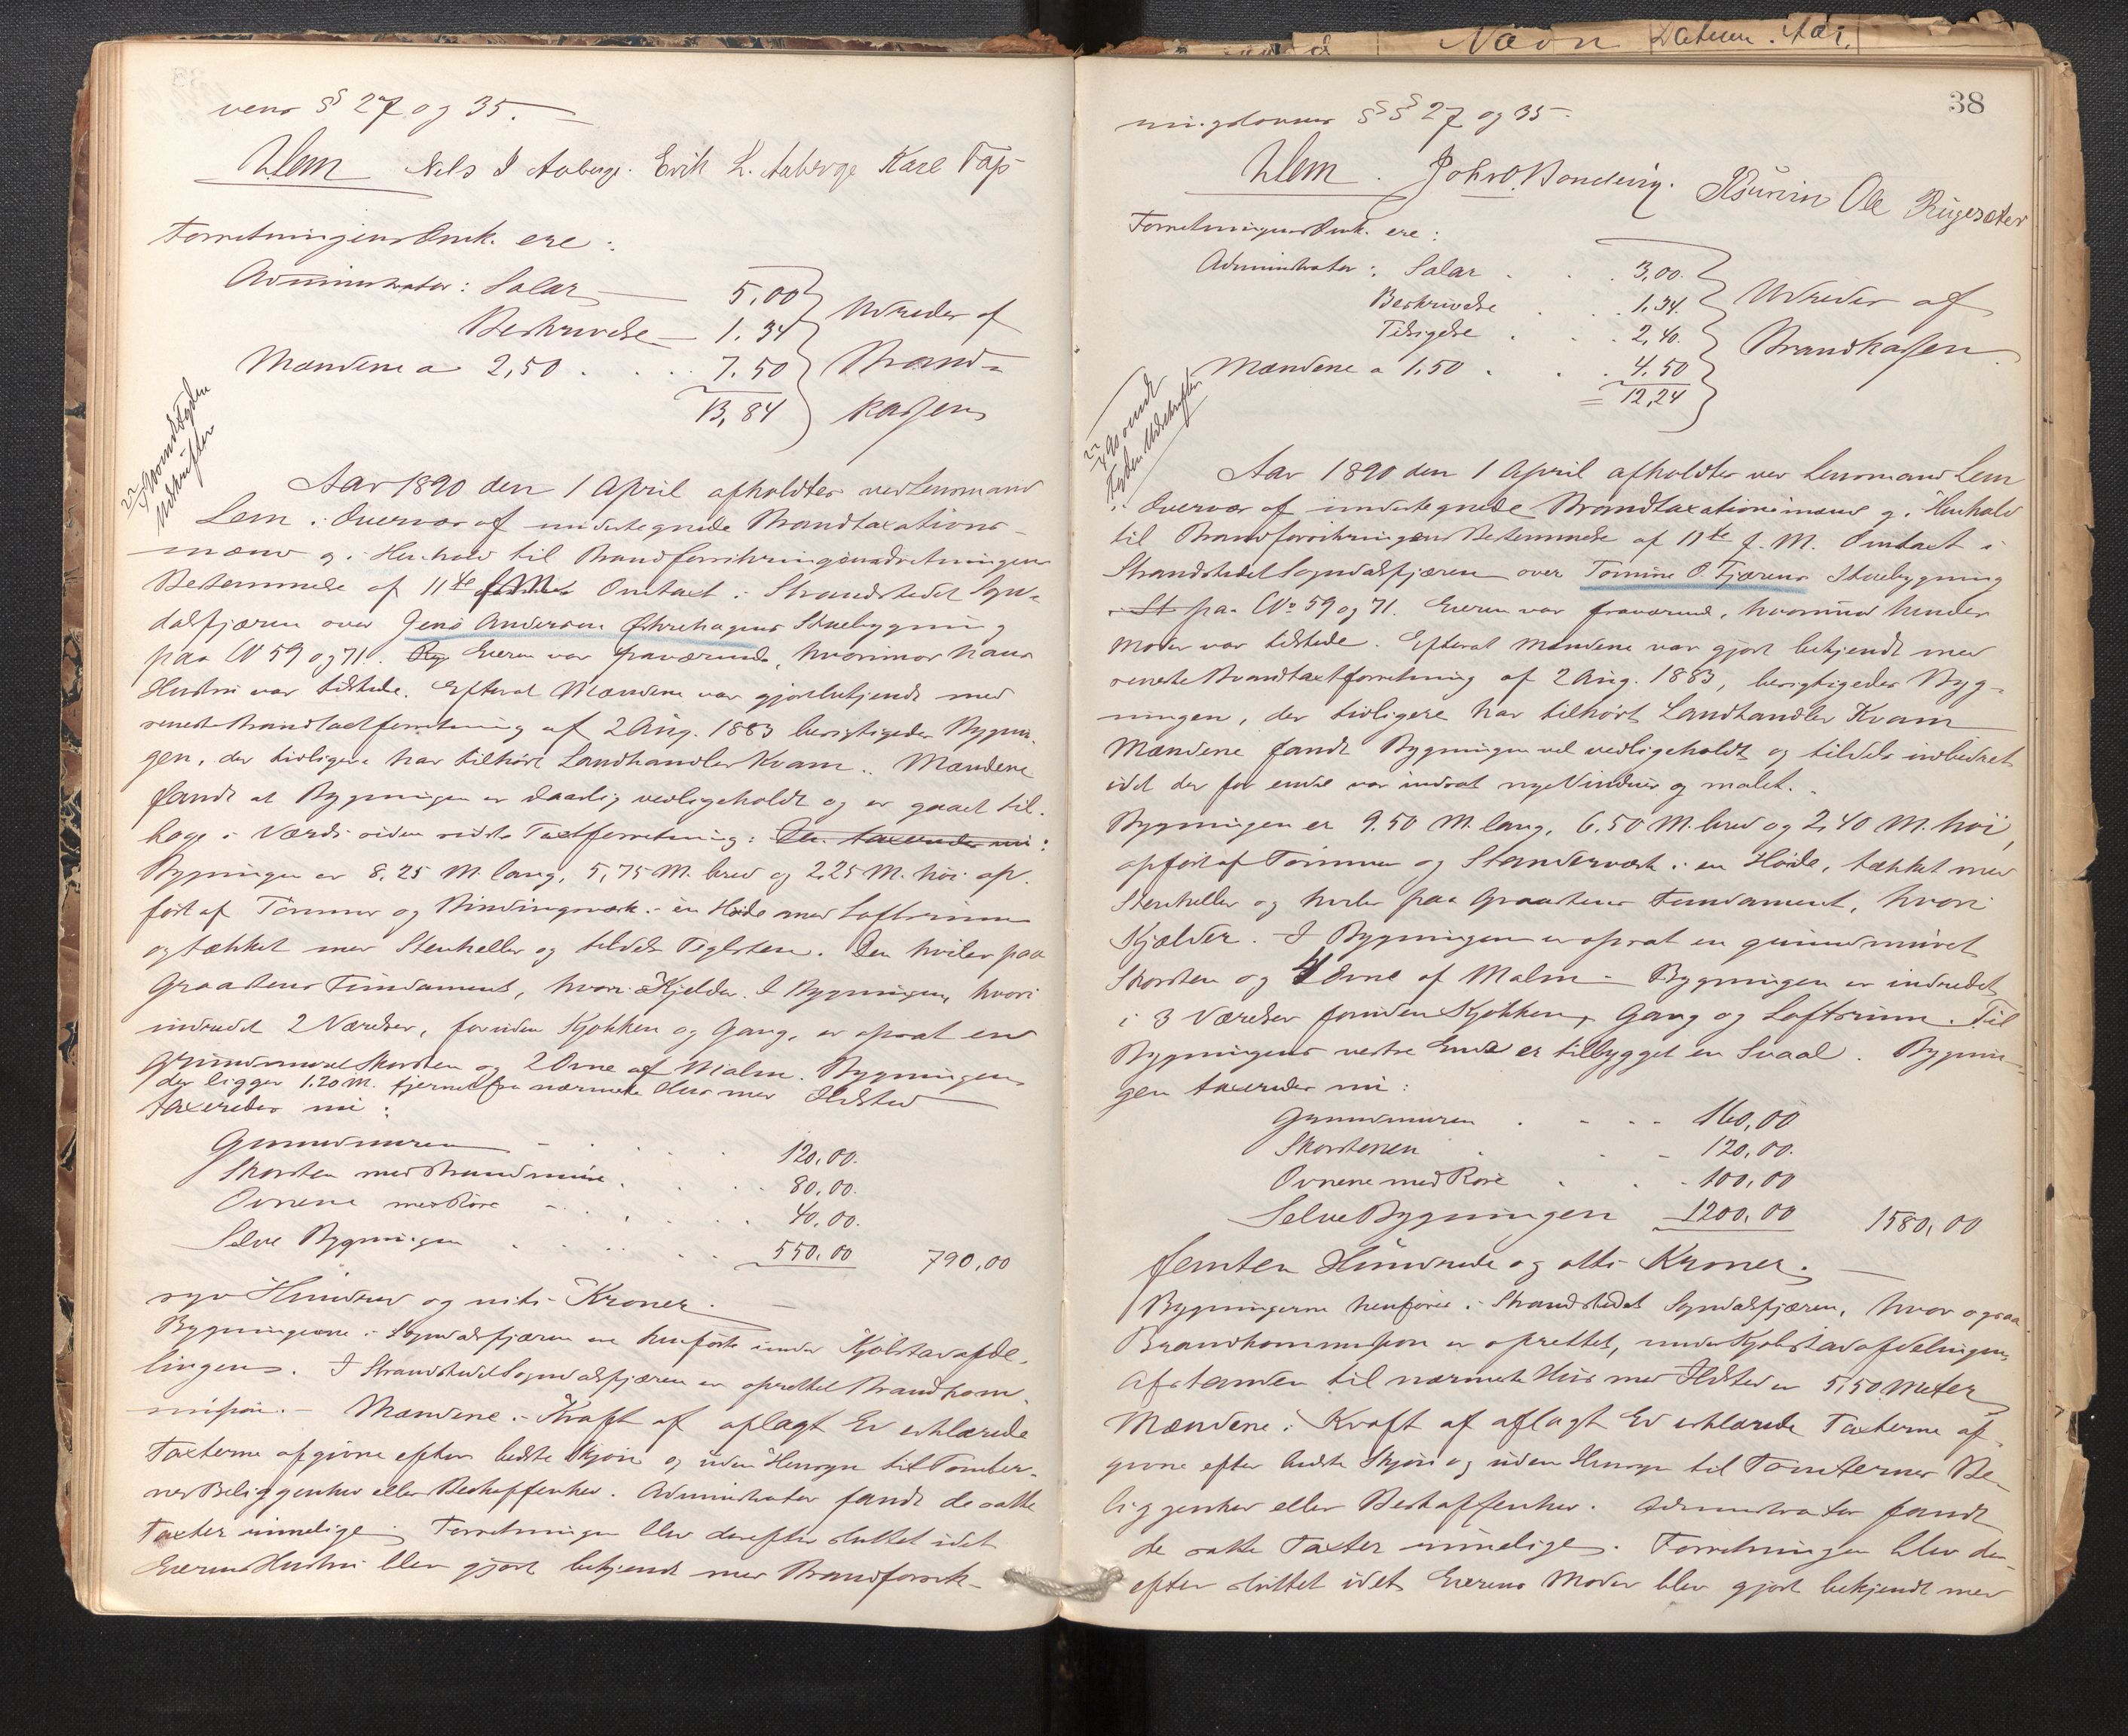 vens § 27 og 35.
Lem Nels I Aaberge. Erik L. Aaberge Karl Fap
Forretningens Omk. ere:
Administrator: Salar 5,00
Beskrivelse 1.34
Mændene a 2,50 . . . 7.50
13,84
Udredes af
Brand-
kassen
22/4 90 sendt Eieren
Udskriften
Aar 1890 den 1 April afholdtes ved Lensmand
Lem i Overvær af undertegnede Brandtaxations-
mænd og i Henhold til Brandforsikringsindretningens
Bestemmelse af 11te f. M. Omtaxt i Strandstedet Sogn-
dalsfjæren over Jens Andersen Øhrehagens Stuebygning
paa No 59 og 71. Eieren var fraværende, hvorimod hans
Hustru var tilstede. Efterat Mændene var gjort bekjendt med
seneste Brandtaxtforretning af 2 Aug. 1883 besigtigedes Bygnin-
gen, der tidligere har tilhørt Landhandler Kvam. Mændene
fandt at Bygningen er daarlig vedligeholdt og er gaaet til-
bage i Værdi siden sidste Taxtforretning: Den taxeredes nu:
Bygningen er 8,25 M. lang, 5,75 M. bred og 2,25 M. høi op-
ført af Tømmer og Bindingsværk i en Høide med Loftsrum
og tækket med Stenheller og tildels Teglsten. Den hviler paa
Graastens Fundament, hvori Kjelder. I Bygningen, hvori
indredet 2 Værelser, foruden Kjøkken og Gang, er opsat en
grundmuret Skorsten og 2 Ovne af Malm. Bygningen
der ligger 1.20 M. fjernet fra nærmeste Hus med Ildsted
taxeredes nu:
Grundmuren . . . 120,00.
Skorsten med Brandmure . . . 80,00.
Ovnene med Rør . . . 40,00.
Selve Bygningen . . . 550,00 790,00
syv Hundred og niti Kroner.
Bygningerne i Sogndalsfjæren ere henførte under Kjøbstadafde-
lingen. I Strandstedet Sogndalsfjæren er oprettet Brandkom-
mission. Mændene i Kraft af aflagt Ed erklærede
Taxterne afgivne efter bedste Skjøn og uden Hensyn til Tomter-
nes Beliggenhed eller Beskaffenhed. Administrator fandt de satte
Taxter rimelige. Forretningen blev derefter sluttet idet
Eierens Hustru blev gjort bekjendt med Brandforsik-
38
ringslovens §§ 27 og 35.
Lem. Joh. O. Bondevig. Ole Rugesæter
Forretningens Omk. ere:
Administrator: Salar . . . 3,00.
Beskrivelse . . . 1.34.
Tilsigelse . . . 2,40.
Mændene a 1.50 . . . 4.50
= 12,24
Udredes af
Brandkassen
22/4 90 sendt
Eieren Udskriften
Aar 1890 den 1 April afholdtes ved Lensmand Lem
i Overvær af undertegnede Brandtaxationsmænd og i Henhold
til Brandforsikringens Bestemmelse af 11te f. M. Omtaxt i
Strandstedet Sogndalsfjæren over Tomine O. Fjærens Stuebygning
i St paa No 59 og 71. Eieren var fraværende, hvorimod hendes
Moder var tilstede. Efterat Mændene var gjort bekjendt med
seneste Brandtaxtforretning af 2 Aug. 1883, besigtigedes Byg-
ningen, der tidligere har tilhørt Landhandler Kvam
Mændene fandt Bygningen vel vedligeholdt og tildels indbedret
idet der for endel var indsat nye Vinduer og malet.
Bygningen er 9.50 M. lang, 6.50 M. bred og 2,40 M. høi,
opført af Tømmer og Standerværk i en Høide, tækket med
Stenheller og hviler paa Graastens Fundament, hvori
Kjælder. I Bygningen er opsat en grundmuret
Skorsten og 4 Ovne af Malm - Bygningen er indredet
i 3 Værelser foruden Kjøkken, Gang og Loftsrum. Til
Bygningens vestre Ende er tilbygget en Svaal. Bygnin-
gen taxeredes nu:
Grundmuren . . . 160,00
Skorstenen . . . 120,00.
Ovnene med Rør . . . 100,00
Selve Bygningen 1200,00 1580,00
femten Hundrede og otti Kroner.
Bygningerne henføres i Strandstedet Sogndalsfjæren, hvor ogsaa
Brandkommission er oprettet, under Kjøbstadafdelingen
Afstanden til nærmeste Hus med Ildsted er 5,50 Meter
Mændene i Kraft af aflagt Ed erklærede Taxterne af-
givne efter bedste Skjøn og uden Hensyn til Tomternes Be-
liggenhed eller Beskaffenhed. Administrator fandt
de satte Taxter rimelige. Forretningen blev der-
efter sluttet idet Eierens Moder blev gjort bekjendt med
Navn Datum. Aar.